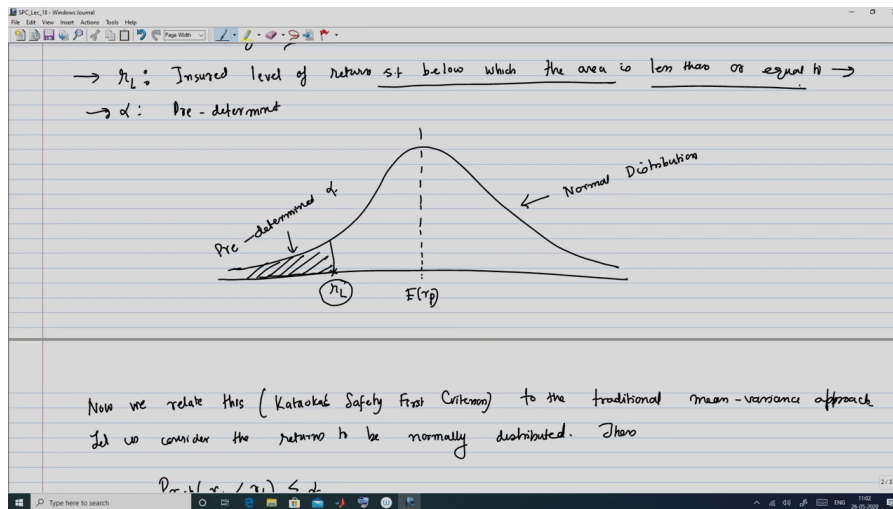 SPC_Lec_18 - Windows Journal
File Edit View Insert Actions Tools Help
Page Width
→ r_L : Insured level of return s.t below which the area is less than or equal to →
→ α : Pre-determint
Pre-determined α
Normal Distribution
r_L
E(r_p)
Now we relate this (Kataoka's Safety First Criterion) to the traditional mean-variance approach
Let us consider the returns to be normally distributed. Then
≤ α
2/3
Type here to search
ENG
11:02
26-05-2020